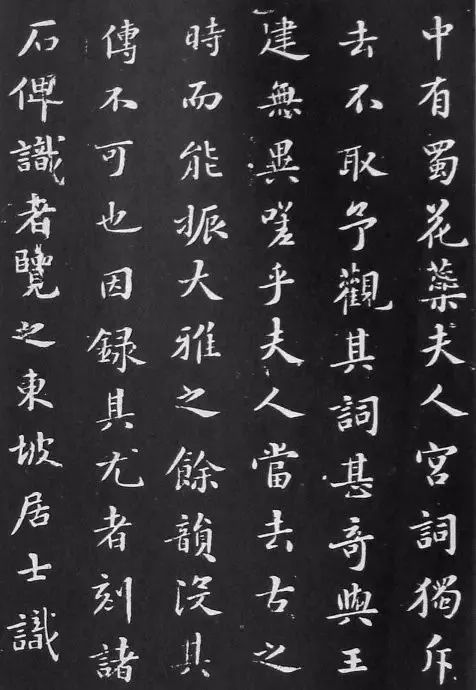 中有蜀花蘂夫人宮詞獨斥
去不取予觀其詞甚奇與王
建無異嗟乎夫人當去古之
時而能振大雅之餘韻没其
傳不可也因録其尤者刻諸
石俾識者覽之東坡居士識